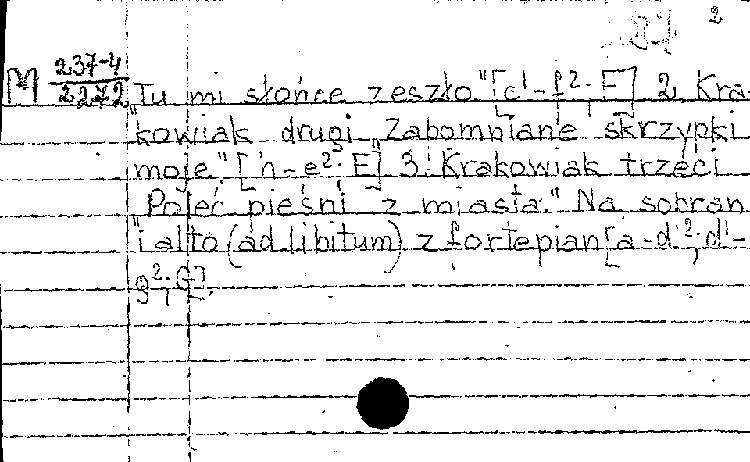 2
M 237-4/2272 Tu mi słońce zeszło" [c¹-f²; F] 2. Kra-
kowiak drugi „Zabomniane skrzypki
moje." [h-e²; E] 3. Krakowiak trzeci
„Poleć pieśni z miasta." Na sobran
i alto (ad libitum) z fortepian [a-d²; d¹-
g²; G].